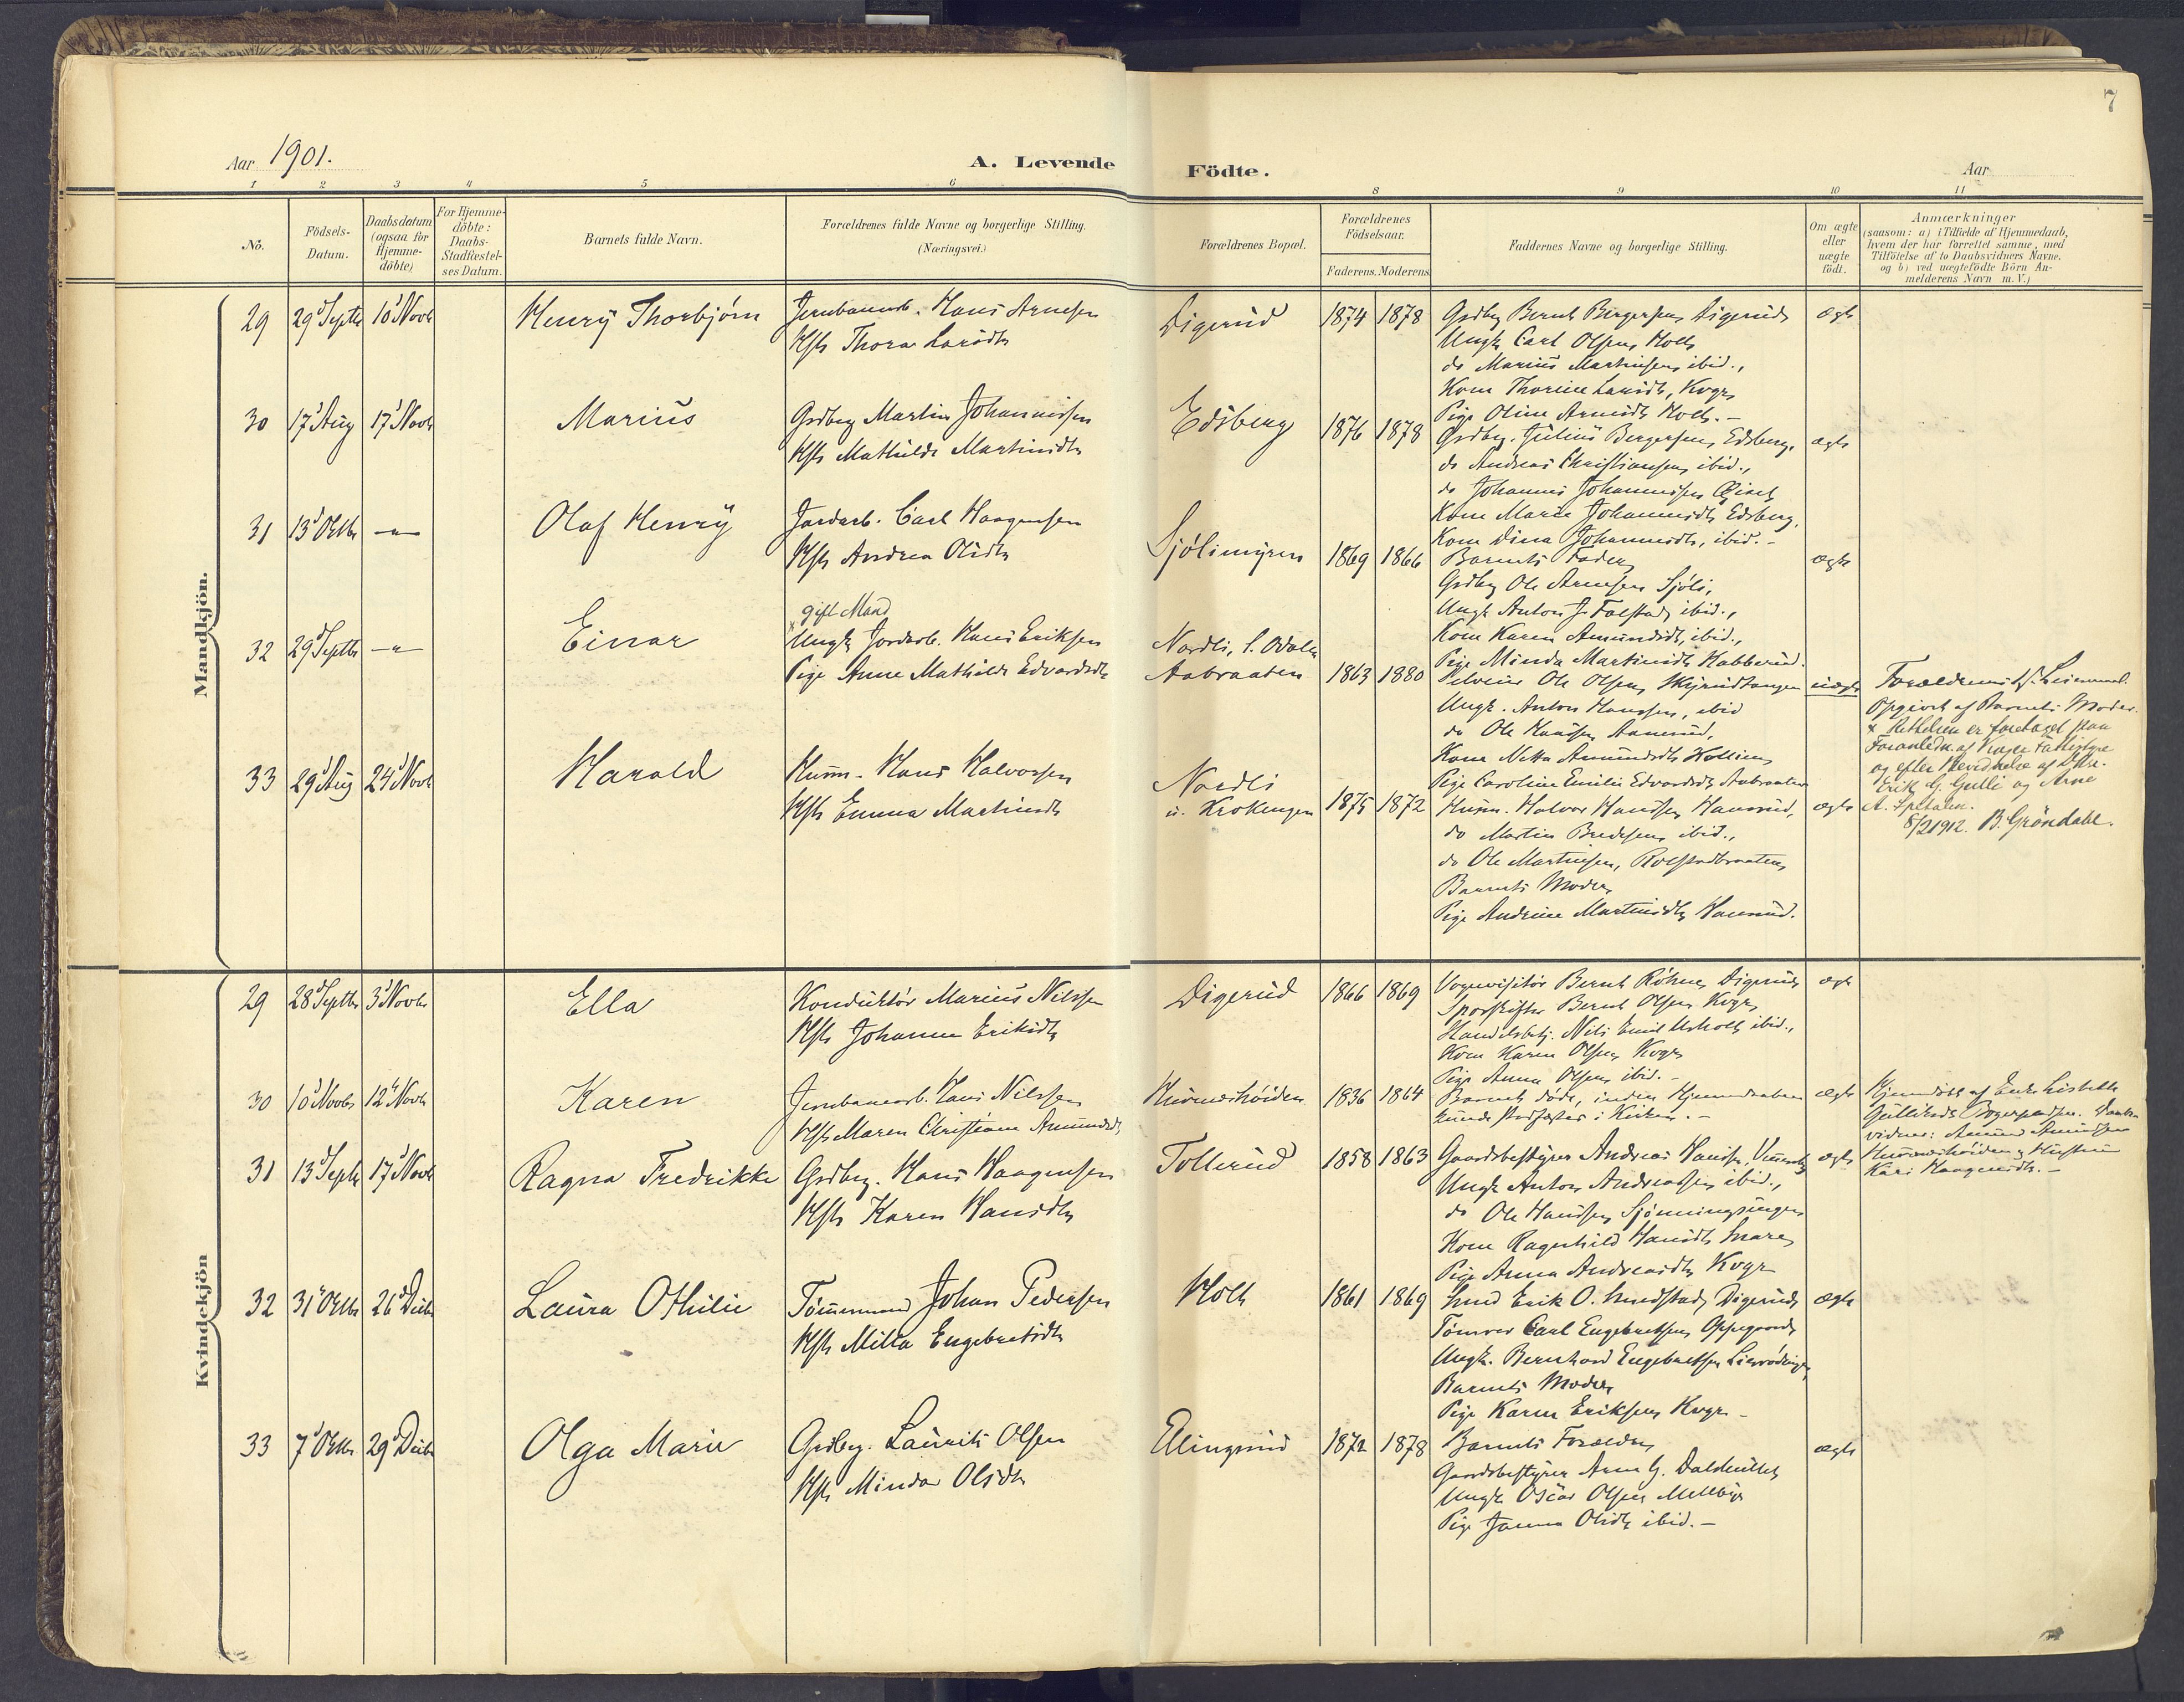 7
Aar 1901.
A. Levende Födte.
Aar
1 2 3 4 5 6 8 9 10 11
No.
Födsels-Datum.
Daabsdatum (ogsaa for Hjemme-döbte)
For Hjemme-döbte: Daabs-Stadfæstel-ses Datum.
Barnets fulde Navn.
Forældrenes fulde Navne og borgerlige Stilling.
(Næringsvei.)
Forældrenes Bopæl.
Forældrenes Födselsaar.
Faderens. Moderens.
Faddernes Navne og borgerlige Stilling.
Om ægte eller uægte födt.
Anmærkninger
(saasom: a) i Tilfælde af Hjemmedaab,
hvem der har forrettet samme, med
Tilföielse af to Daabsvidners Navne.
og b) ved uægtefödte Börn An-
melderens Navn m. V.)
Mandkjön.
29 29d Septbr 10d Novbr Henry Thorbjörn
Jernbanearb. Hans Arnesen
Thora
Digerud 1874 1878
Grdbrg Bernt Bergersen, Digerud
Ungk Carl Olsen, Holt
do Marius Martinsen, ibid.,
Kone Thorine
Pige Oline Holt. -
ægte
30 17d Aug 17d Novbr Marius
Grdbrg Martin Johannissen
Mathilde Martinsdtr
Edsberg 1876 1878
Grdbrg. Julius Bergersen, Edsberg,
do Andreas Christiansen, ibid.,
do Johannes Johannissen
Kone Marie Johannisdtr Edsberg,
Kone Dina Johannesdtr, ibid. -
ægte
31 13d Oktbr -"- Olaf Henry
Jordarb. Carl Haagensen
Andrea Olsdtr
Sjölimyren 1869 1866
Barnets Fader,
Grdbrg Ole Arnesen Sjöli,
Ungk Anton J. Falstad, ibid.,
Kone Karen Amundsdtr, ibid.,
Pige Minda Martinsdtr Kabberud.
ægte
32 29d Septbr -"- Einar
x gift Mand
Ungk Jordarb. Hans Eriksen
Pige Anne Mathilde Edvardsdtr
Nordli, S. Odalen
Aabraaten 1863 1880
Ole Olsen,
Ungk. Anton Hansen, ibid
do Ole
Kone Mette Amundsdtr
Pige Caroline Emilie Edvardsdtr Aabraaten
uægte
Forældrenes
Opgivet af Barnets Moder.
x Rettelsen er foretaget paa
Foranledn. af
og efter af
Erik G. Gulli og Arne
A.
8/2 1912. B. Gröndahl.
33 29d Aug 24d Novbr Harald
Husm. Hans Halvorsen
Emma Martinsdtr
Nordli
u. Krokengen 1875 1872
Husm. Halvor Hansen, Hansrud,
do Martin Bredesen, ibid.,
do Ole Martinsen, Rolstadbraaten,
Barnets Moder,
Pige Andrine Martinsdtr Hansrud.
ægte
Kvindekjön
29 28d Septbr 3d Novbr Ella
Konduktör Marius Nilssen
Johanne Eriksdtr
Digerud 1866 1869
Vognvisitör Bernt Röhne, Digerud
Sporskifter Bernt Olsen, Kvgr,
Handelsbtj. Nils Emil ibid.,
Kone Karen Olsen, Kvgr
Pige Anna Olsen, ibid. -
ægte
30 10d Novbr 12te Novbr Karen
Jernbanearb. Hans Nilssen
Maren Christiane Amundsdtr
1836 1864
Barnet döde, inden Hjemmedaaben
kunde stadfæstes i Kirken. -
ægte
Hjemmedöbt af Enke Lisbeth
Daabs-
vidner: Amund Amundsen
og Hustru
Kari Haagensdtr. -
31 13d Septbr 17d Novbr Ragna Fredrikke
Grdbrg. Hans Haagensen
Karen Hansdtr
Tollerud 1858 1863
Gaardsbestyrer Andreas Hansen,
Ungk Anton Andreassen, ibid.,
do Ole Hansen,
Kone Ragnhild Hansdtr
Pige Anna Andreasdtr, Kvgr
ægte
32 31te Oktbr 26d Decbr Laura Othilie
Tömmermand Johan Pedersen
Milla Engebretsdtr
Holt 1861 1869
Smed Erik O. Smedstad, Digerud,
Tömrer Carl Engebretsen, Oppegaard,
Ungk. Bernhard Engebretsen
Barnets Moder,
Pige Karen Eriksen, Kvgr -
ægte
33 7d Oktbr 29d Decbr Olga Marie
Grdbrg. Laurits Olsen
Minda Olsdtr
Elingsrud 1872 1878
Barnets Forældre,
Gaardsbestyrer Arne G.
Ungk Oscar Olsen, Mellbye
Pige Janna Olsdtr ibid. -
ægte